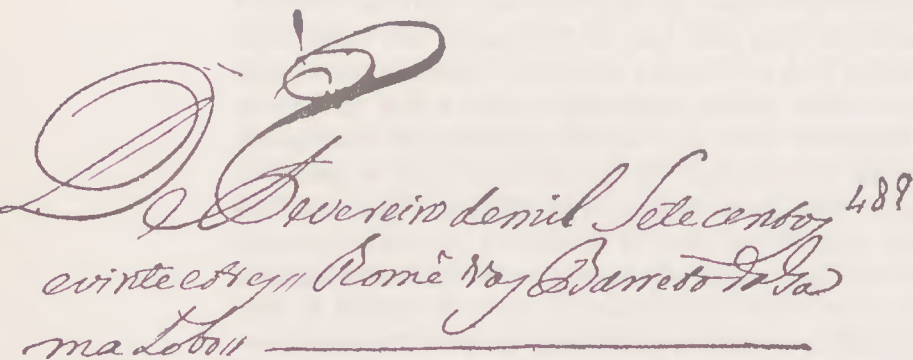 De Fevereiro de mil Setecentos 489
e vinte e tres // Romê Vas Barreto da Ga
ma Lobo //